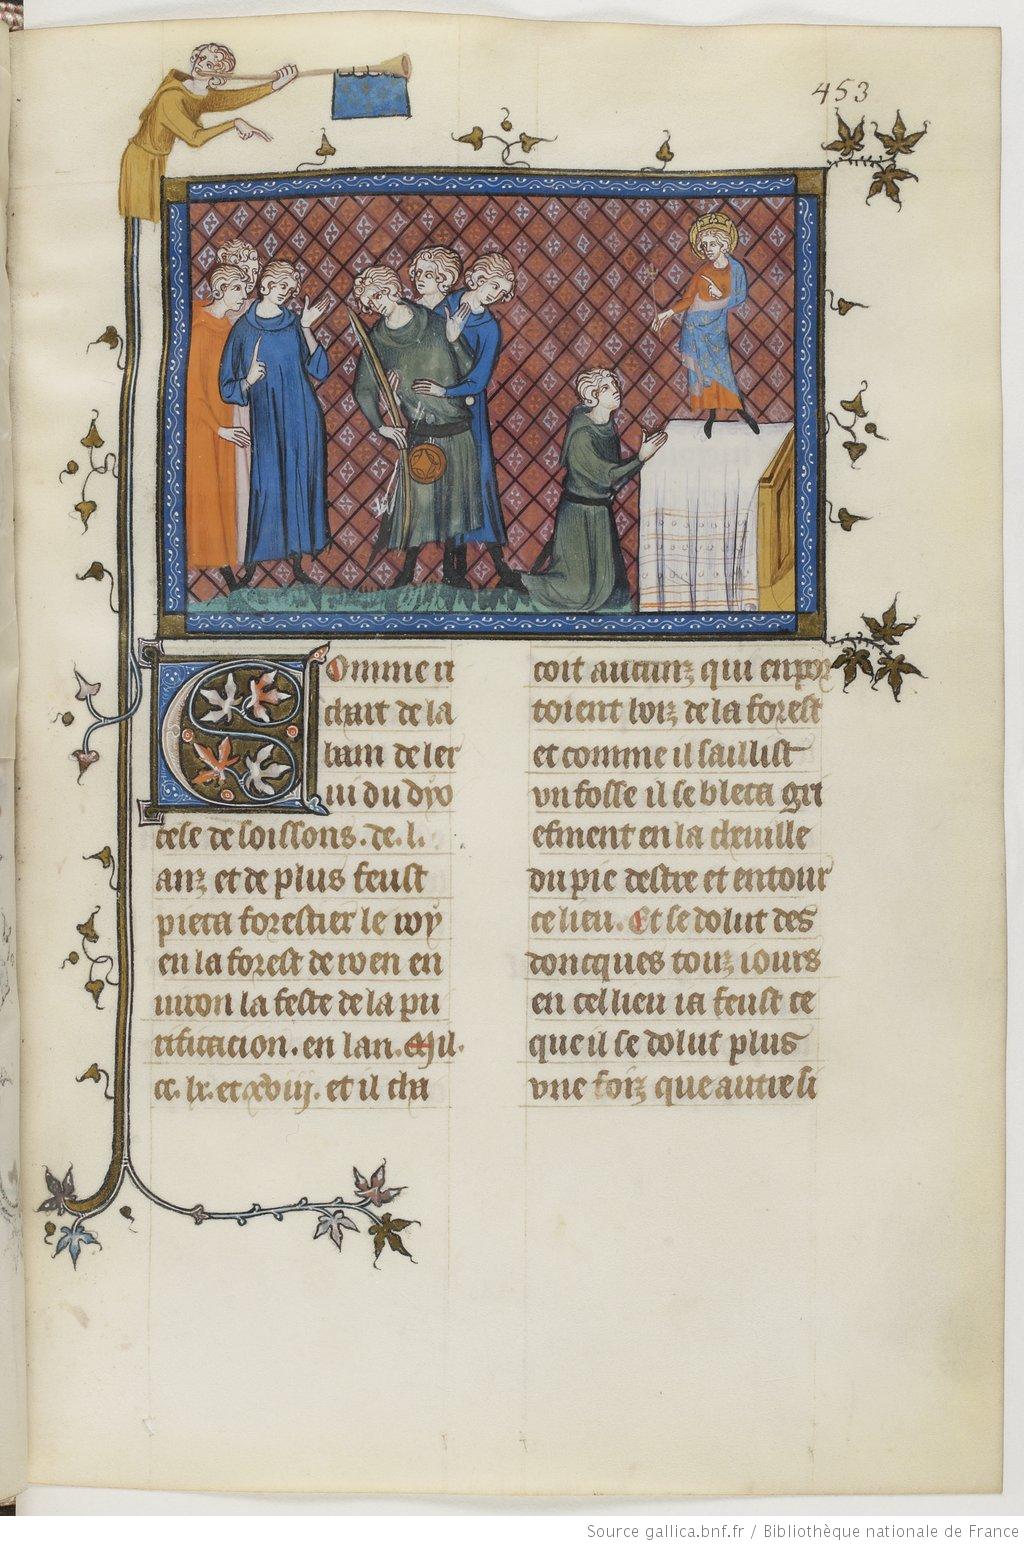 453
Comme ri
chart de la
bam de ler
lui du dyo
cese de soissons. de .l.
anz et de plus feust
pieca forestier le roy
en la forest de roen en
uiron la feste de la pu
rificacion. en lan. Mil.
cc. lx. et xviij. et il cha
coit aucunz qui enpor
toient boiz de la forest
et comme il saillist
vn fosse il se bleca gri
efment en la cheuille
du pie destre et entour
ce lieu. Et se dolut des
doncques touz iours
en cel lieu ia feust ce
que il se dolut plus
vne foiz que autre si
Source gallica.bnf.fr / Bibliothèque nationale de France